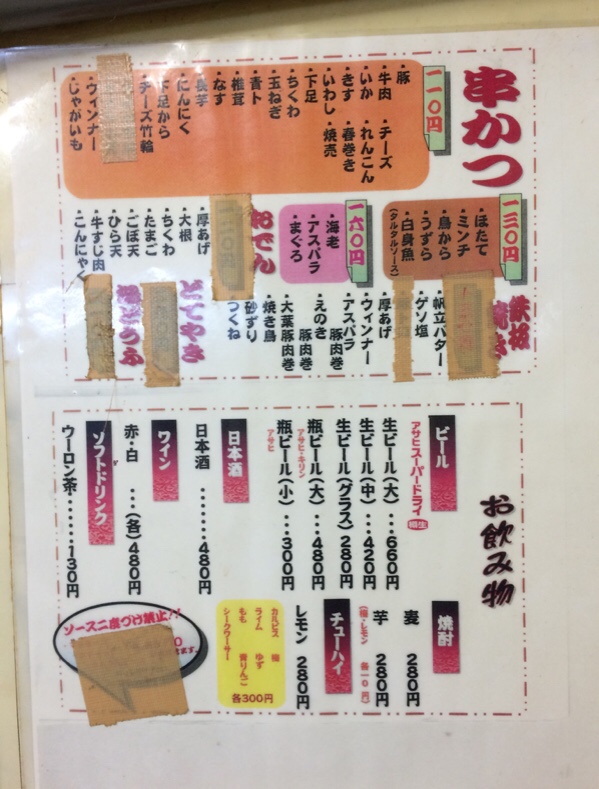 串かつ
一一〇円
・豚
・牛肉 ・チーズ
・いか ・れんこん
・きす ・春巻き
・いわし ・焼売
・下足
・ちくわ
・玉ねぎ
・青ト
・椎茸
・なす
・長芋
・にんにく
・下足から
・チーズ竹輪
・ウィンナー
・じゃがいも
一三〇円
・ほたて
・ミンチ
・鳥から
・うずら
・白身魚
(タルタルソース)
一六〇円
・海老
・アスパラ
・まぐろ
おでん
・厚あげ
・大根
・ちくわ
・たまご
・ごぼ天
・ひら天
・牛すじ肉
・こんにゃく
鉄板焼き
・帆立バター
・ゲソ塩
・厚あげ
・ウィンナー
・アスパラ豚肉巻
・えのき豚肉巻
・大葉豚肉巻
・焼き鳥
・砂ずり
つくね
どてやき
湯どうふ
お飲み物
ビール
アサヒスーパードライ
樽生
生ビール(大)…660円
生ビール(中)…420円
生ビール(グラス)280円
瓶ビール(大)…480円
アサヒ・キリン
瓶ビール(小)…300円
アサヒ
日本酒
日本酒………480円
ワイン
赤・白 …(各)480円
ソフトドリンク
ウーロン茶………130円
焼酎
麦 280円
芋 280円
(梅・レモン 各一〇円)
チューハイ
レモン 280円
カルピス 梅
ライム ゆず
もも 青りんご
シークワーサー
各300円
ソース二度づけ禁止!!
ます。